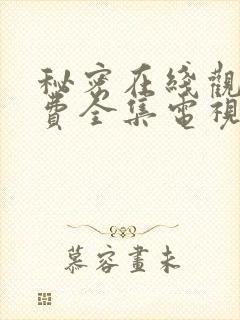 秘密在綫觀
費全集電視
慕容畫未